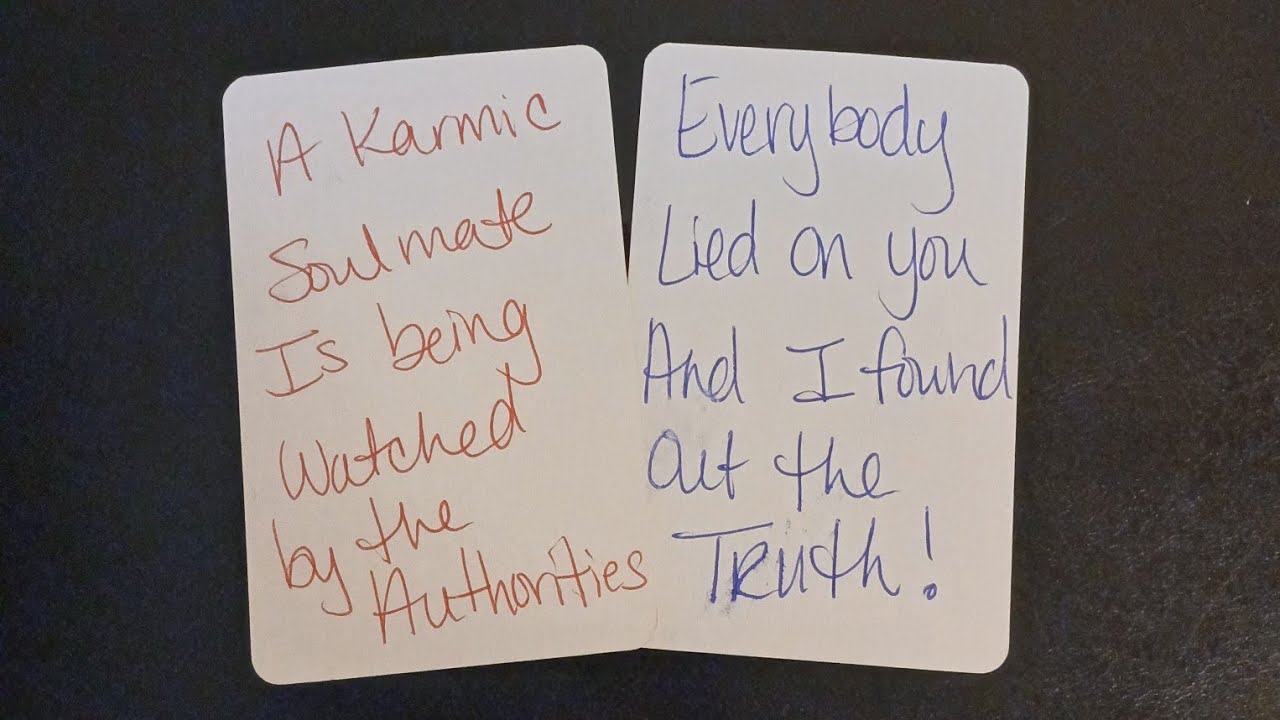 A Karmic
Soulmate
Is being
Watched
by the
Authorities
Everybody
Lied on you
And I found
Out the
Truth!